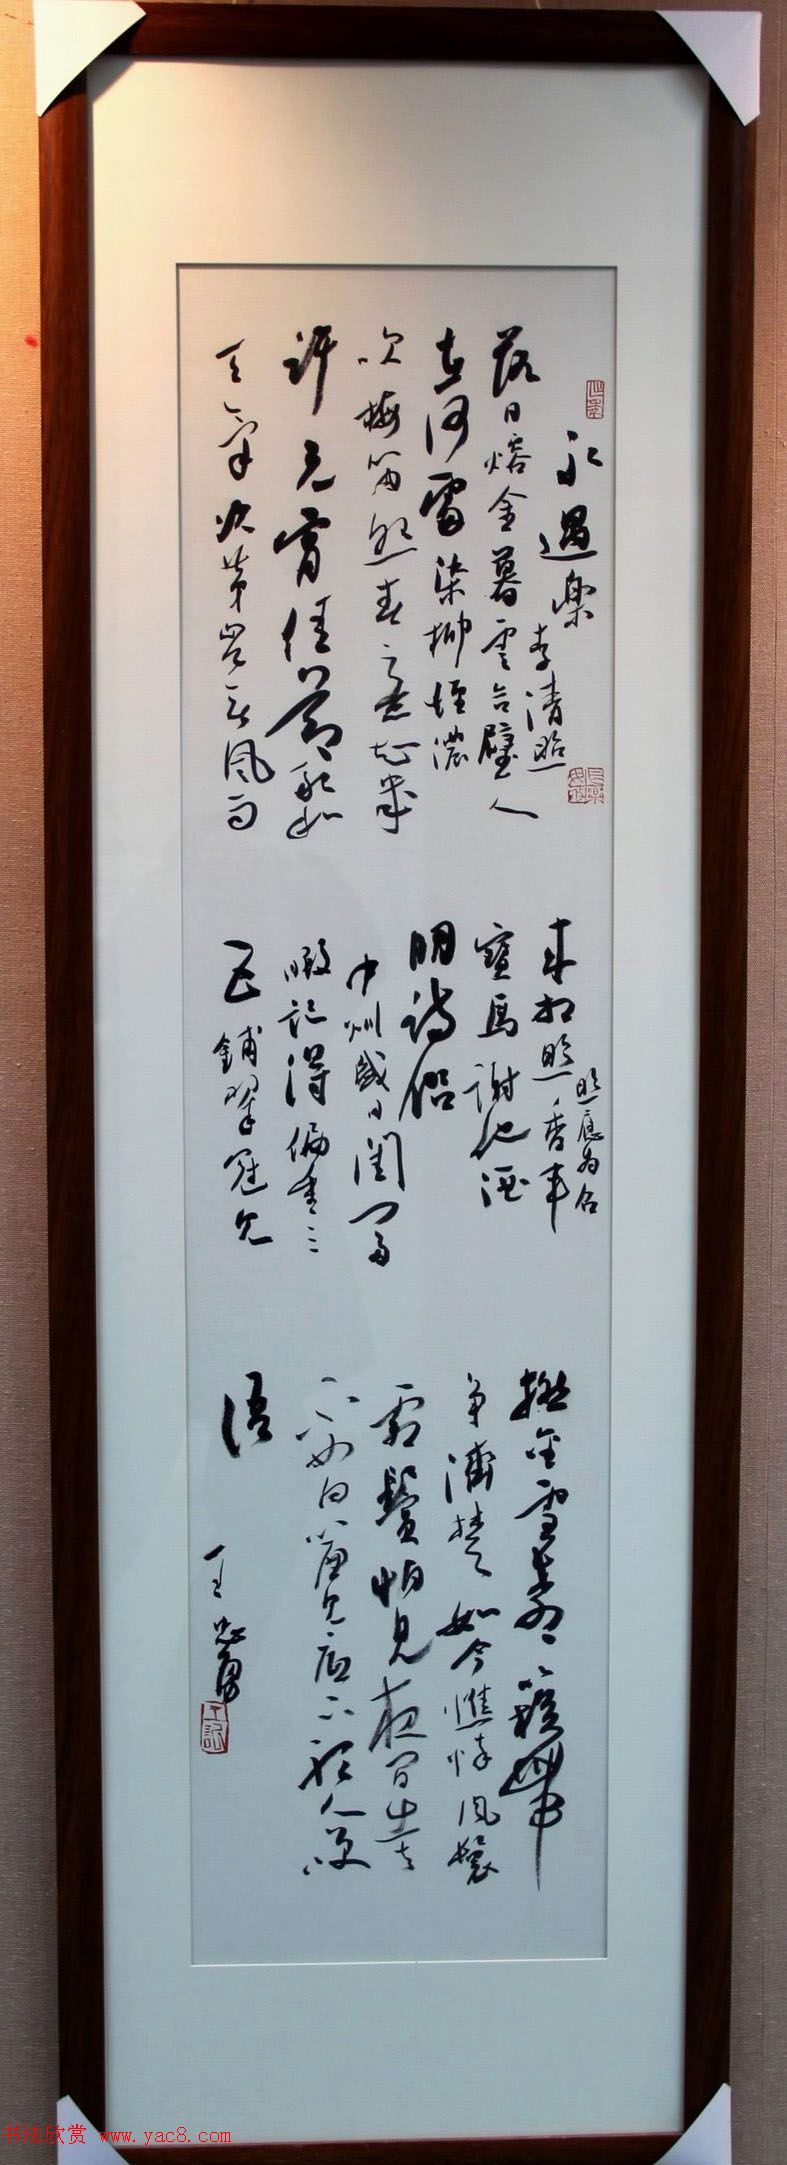 永遇樂
李清照
落日熔金暮雲合璧人
在何處染柳煙濃
吹梅笛怨春意知幾
許元宵佳節融和
天氣次第豈無風雨
照應為召
來相照香車
寶馬謝他酒
朋詩侶
中州盛日閨門多
暇記得偏重三
五鋪翠冠兒
撚金雪柳簇帶
爭濟楚如今憔悴風鬟
霜鬢怕見夜間出去
不如向簾兒底下聽人笑
語
王忠勇
书法欣赏 www.yac8.com